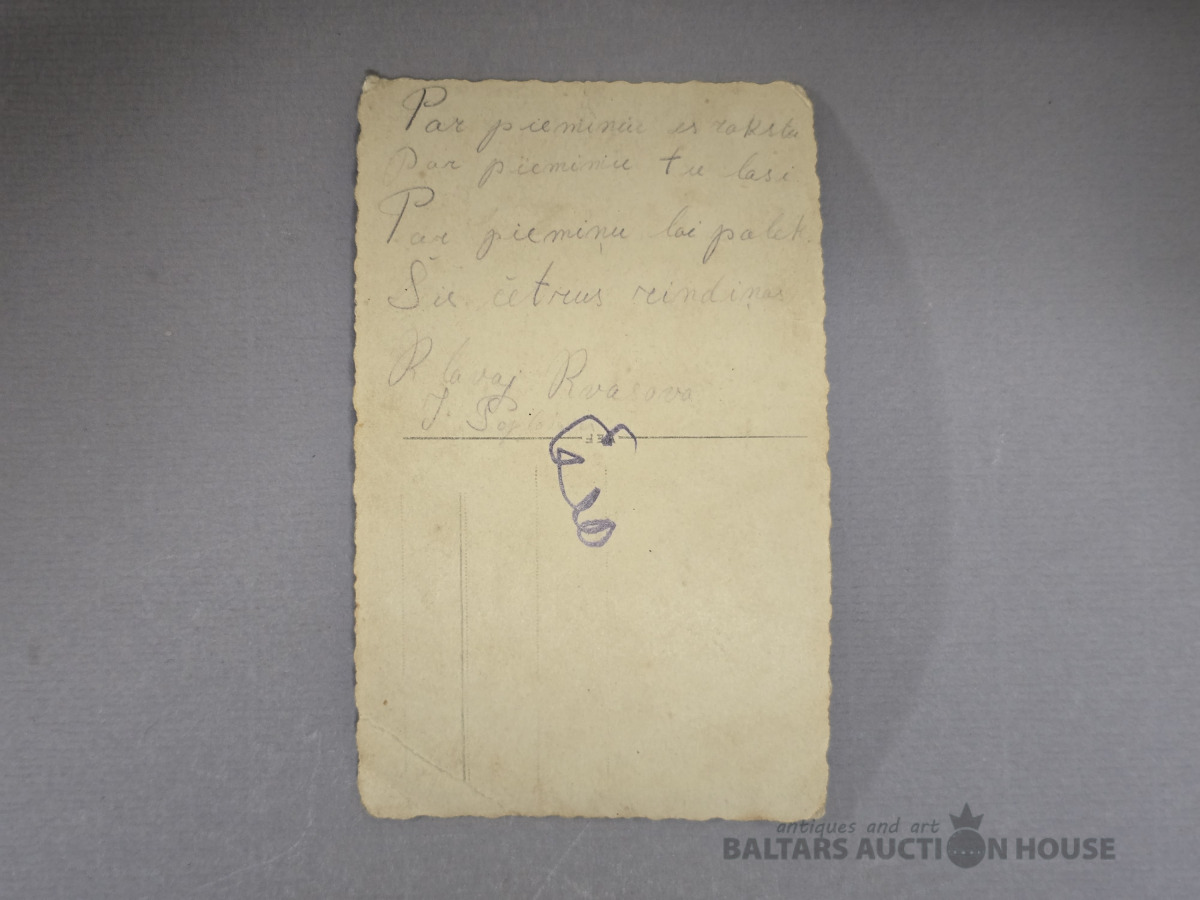 Par pieminiu es rakstu
Par pieminiu tu lasi
Par pieminu lai paliek
Šis četrus rindinas
Klavaj Kvasova
J.
VEF
antiques and art
BALTARS AUCTION HOUSE